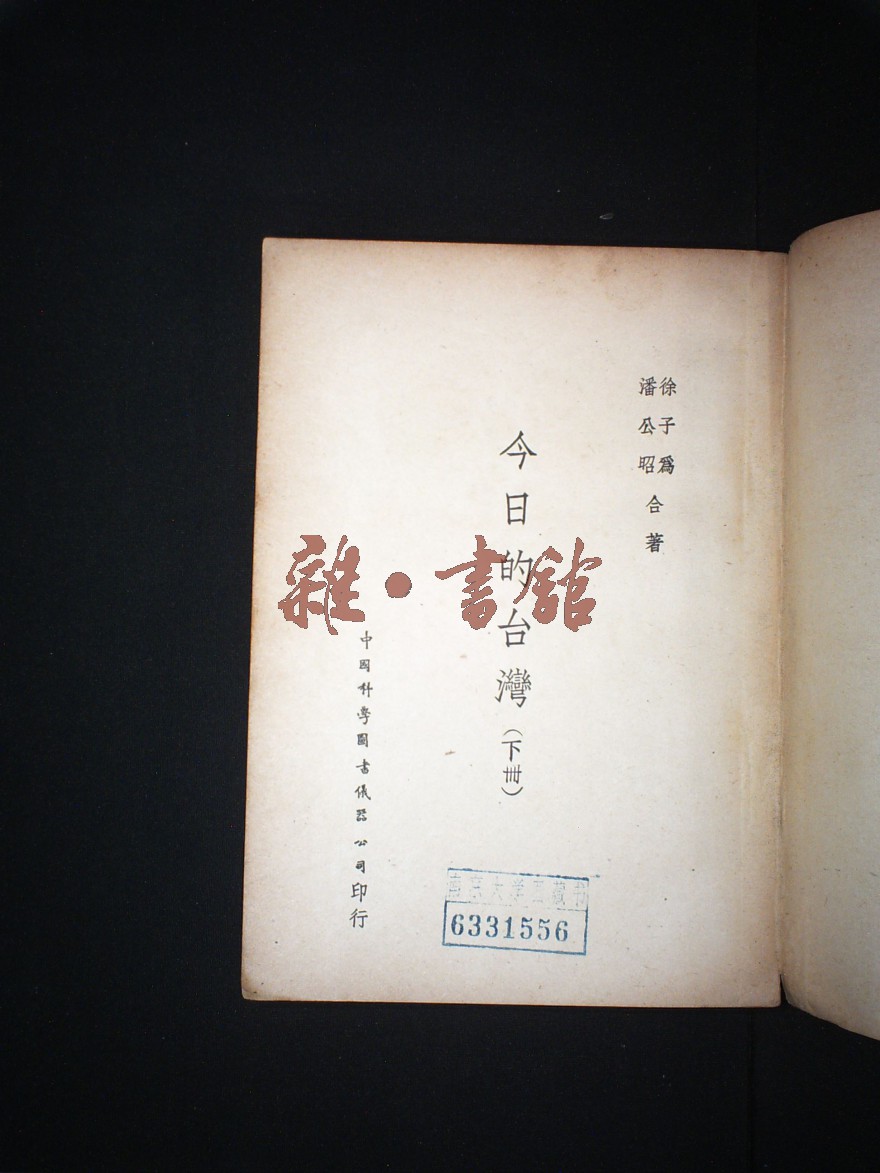 徐子爲
潘公昭
合著
今日的台灣（下冊）
中國科學圖書儀器公司印行
雜·書館
南京大學圖書館
6331556